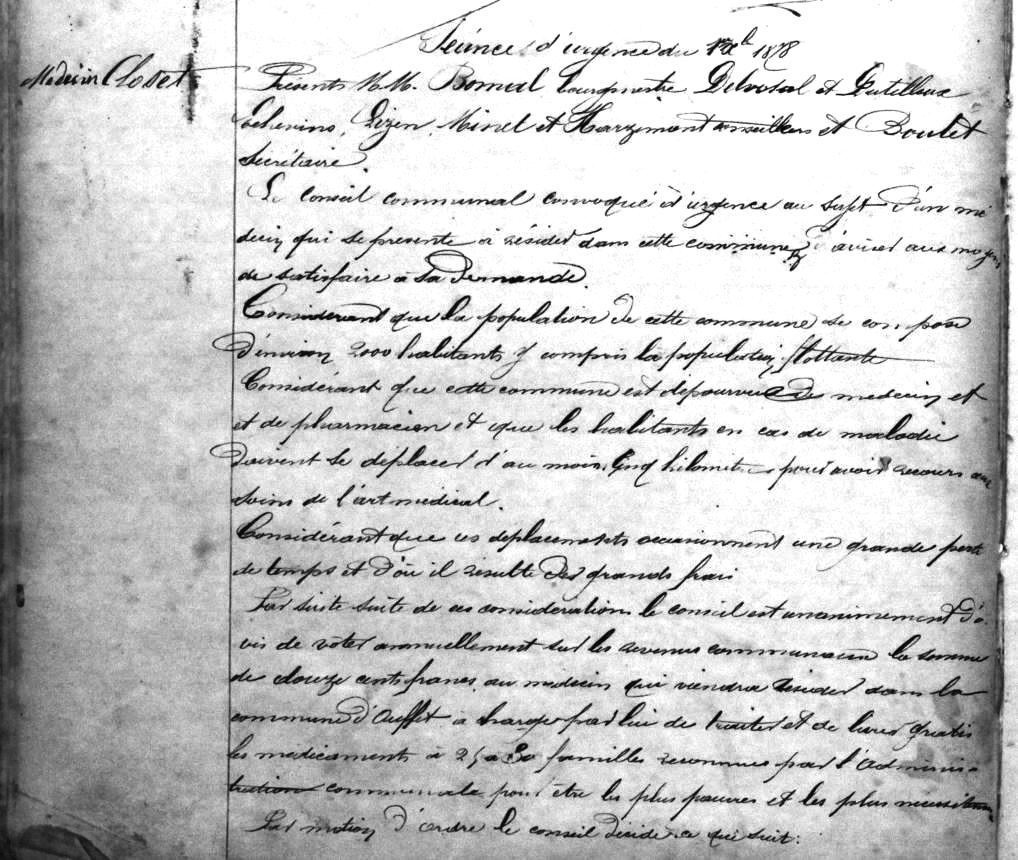 Séance d'urgence du 1878
Médecin Closet
Présents M.M. Bomal, bourgmestre Delvosal et
Echevins, Lizen, Minel et Hargimont conseillers et Boulet
Secrétaire.
Le Conseil communal convoqué d'urgence au sujet d'un mé
decin qui se presente à résider dans cette commune d'aviser aux moyens
de satisfaire à sa demande.
Considerant que la population de cette commune se compose
d'environ 2000 habitants y compris la population flottante
Considérant que cette commune est dépourvue de medecin et
et de pharmacien et que les habitants en cas de maladie
doivent se déplacer d'au moins cinq kilometres pour avoir recours aux
soins de l'art médical.
Considérant que ces déplacements occasionnent une grande perte
de temps et d'où il résulte des grands frais
Par suite suite de ces considerations le conseil est unanimement d'a
vis de voter annuellement sur les revenus communaux la somme
de douze cents francs au medecin qui viendra résider dans la
commune d'Ouffet à charge par lui de traiter et de livrer gratis
les medicaments à 25 a 30 familles reconnues par l'Adminis-
tration communale pour être les plus pauvres et les plus necessiteuses
Par motion d'ordre le conseil décide ce qui suit: